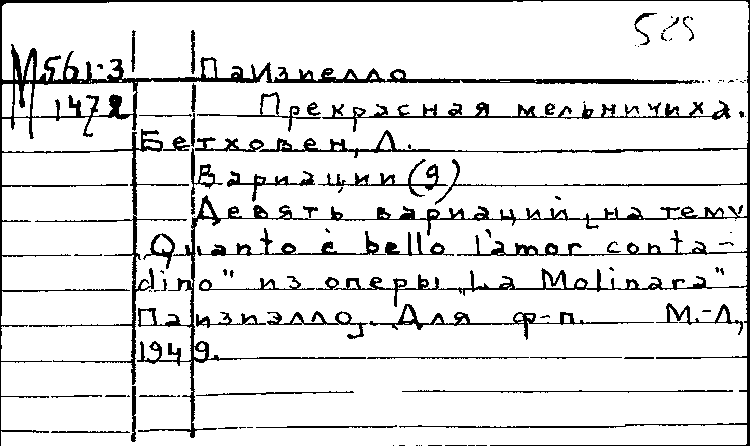 585
М561-3 Паизиелло
1472 Прекрасная мельничиха.
Бетховен, Л.
Вариации (9)
Девять вариаций [на тему
„Quanto è bello l'amor conta-
dino" из оперы „La Molinara"
Паизиэлло]. Для ф-п. М.-Л.,
1949.